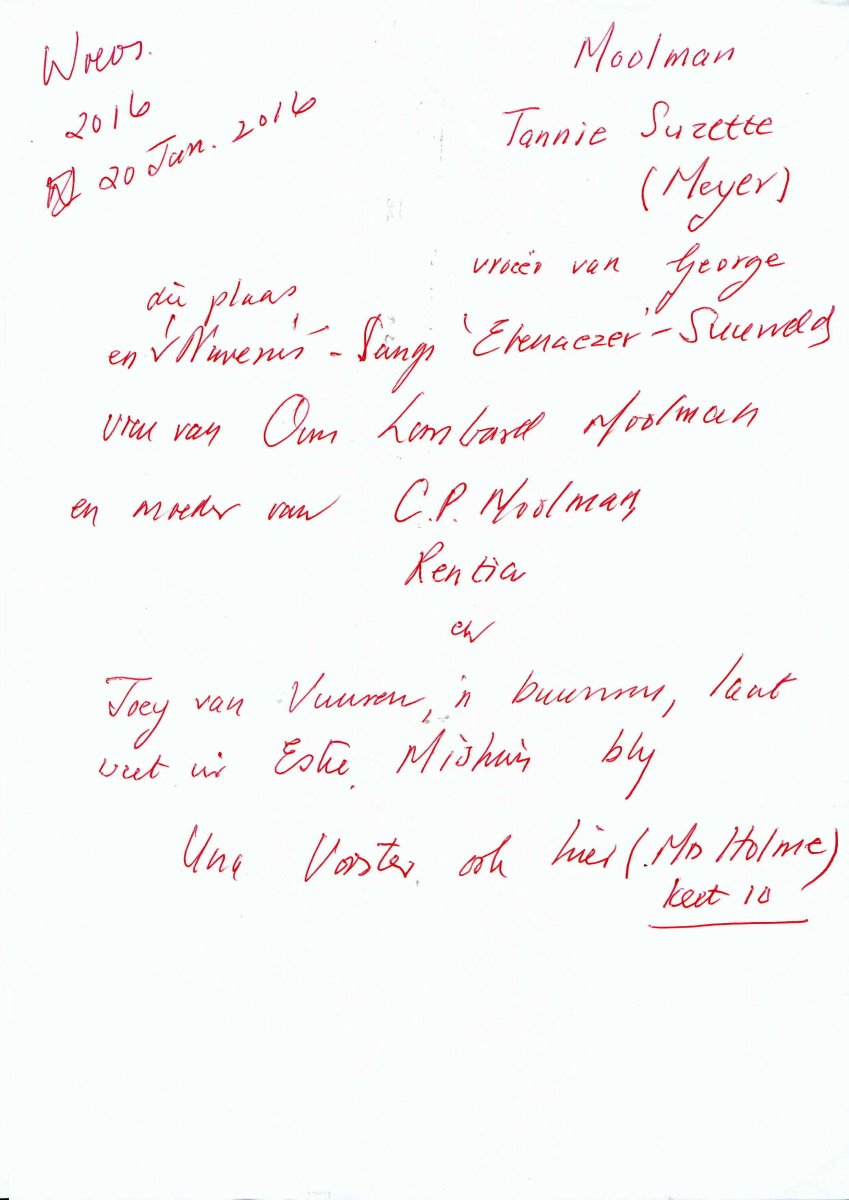 Wreos.
2016
20 Jan. 2016
Moolman
Tannie Suzette
(Meyer)
vroeër van George
die plaas
en - Langs 'Ebenaezer' -
vrou van Oom Lombard Moolman
en moeder van C.P. Moolman,
Rentia
en
Joey van Vuuren, 'n buurvrou, laat
weet vir Estie. bly
Una Vorster ook hier (Mrs Holme)
10